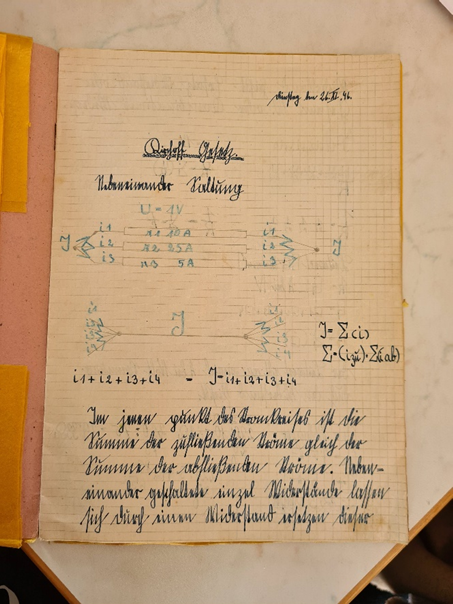 Dienstag den 26.XI.46.
Kirchoff Gesetz.
Nebeneinander Saltung
U = 1V
J i1 r1 10A i1 J
i2 r2 35A i2
i3 r3 5A i3
J
J = Σ(i)
Σ(izu) · Σ(iab)
i1 + i2 + i3 + i4 - J = i1 + i2 + i3 + i4
Im jenen punkt des Stromkreises ist die
Summe der zufließenden Ströme gleich der
Summe der abfließenden Ströme. Neben-
einander geschaltede einzel Widerstände lassen
sich durch einen Widerstand ersetzen dieser